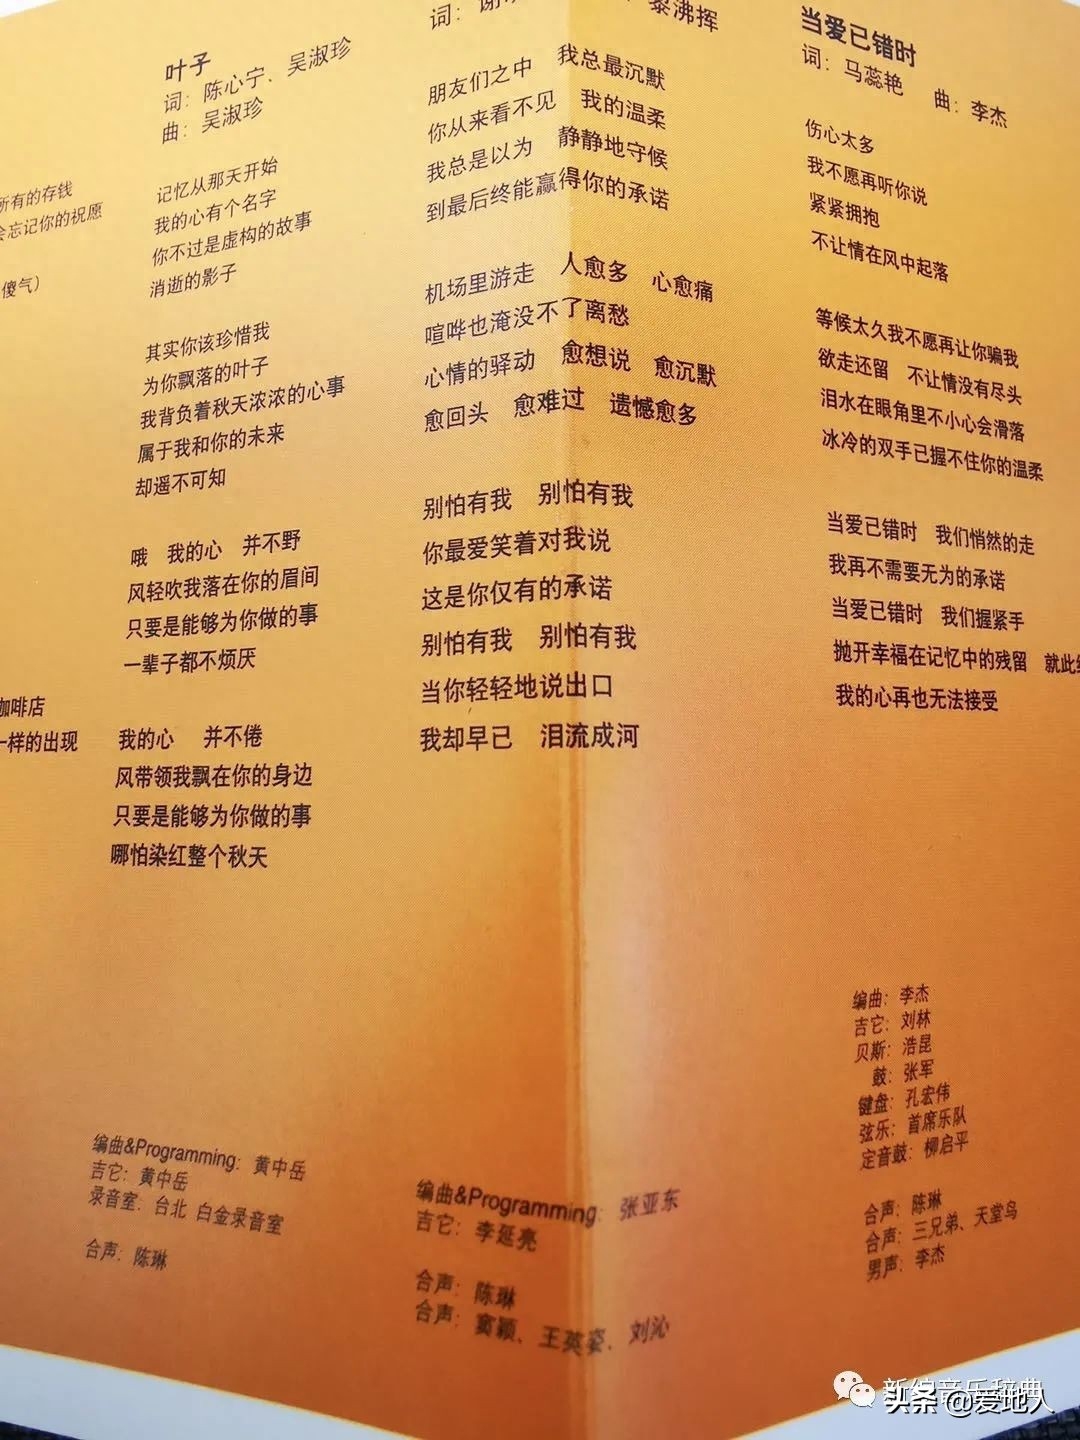 所有的存钱
会忘记你的祝愿
傻气）
咖啡店
一样的出现
叶子
词：陈心宁、吴淑珍
曲：吴淑珍
记忆从那天开始
我的心有个名字
你不过是虚构的故事
消逝的影子
其实你该珍惜我
为你飘落的叶子
我背负着秋天浓浓的心事
属于我和你的未来
却遥不可知
哦　我的心　并不野
风轻吹我落在你的眉间
只要是能够为你做的事
一辈子都不烦厌
我的心　并不倦
风带领我飘在你的身边
只要是能够为你做的事
哪怕染红整个秋天
编曲&Programming：黄中岳
吉它：黄中岳
录音室：台北 白金录音室
合声：陈琳
词：谢 黎沸挥
朋友们之中　我总最沉默
你从来看不见　我的温柔
我总是以为　静静地守候
到最后终能赢得你的承诺
机场里游走　人愈多　心愈痛
喧哗也淹没不了离愁
心情的驿动　愈想说　愈沉默
愈回头　愈难过　遗憾愈多
别怕有我　别怕有我
你最爱笑着对我说
这是你仅有的承诺
别怕有我　别怕有我
当你轻轻地说出口
我却早已　泪流成河
编曲&Programming：张亚东
吉它：李延亮
合声：陈琳
合声：窦颖、王英姿、刘沁
当爱已错时
词：马蕊艳　曲：李杰
伤心太多
我不愿再听你说
紧紧拥抱
不让情在风中起落
等候太久我不愿再让你骗我
欲走还留　不让情没有尽头
泪水在眼角里不小心会滑落
冰冷的双手已握不住你的温柔
当爱已错时　我们悄然的走
我再不需要无为的承诺
当爱已错时　我们握紧手
抛开幸福在记忆中的残留　就此
我的心再也无法接受
编曲：李杰
吉它：刘林
贝斯：浩昆
鼓：张军
键盘：孔宏伟
弦乐：首席乐队
定音鼓：柳启平
合声：陈琳
合声：三兄弟、天堂鸟
男声：李杰
新编音乐辞典
头条 @爱地人